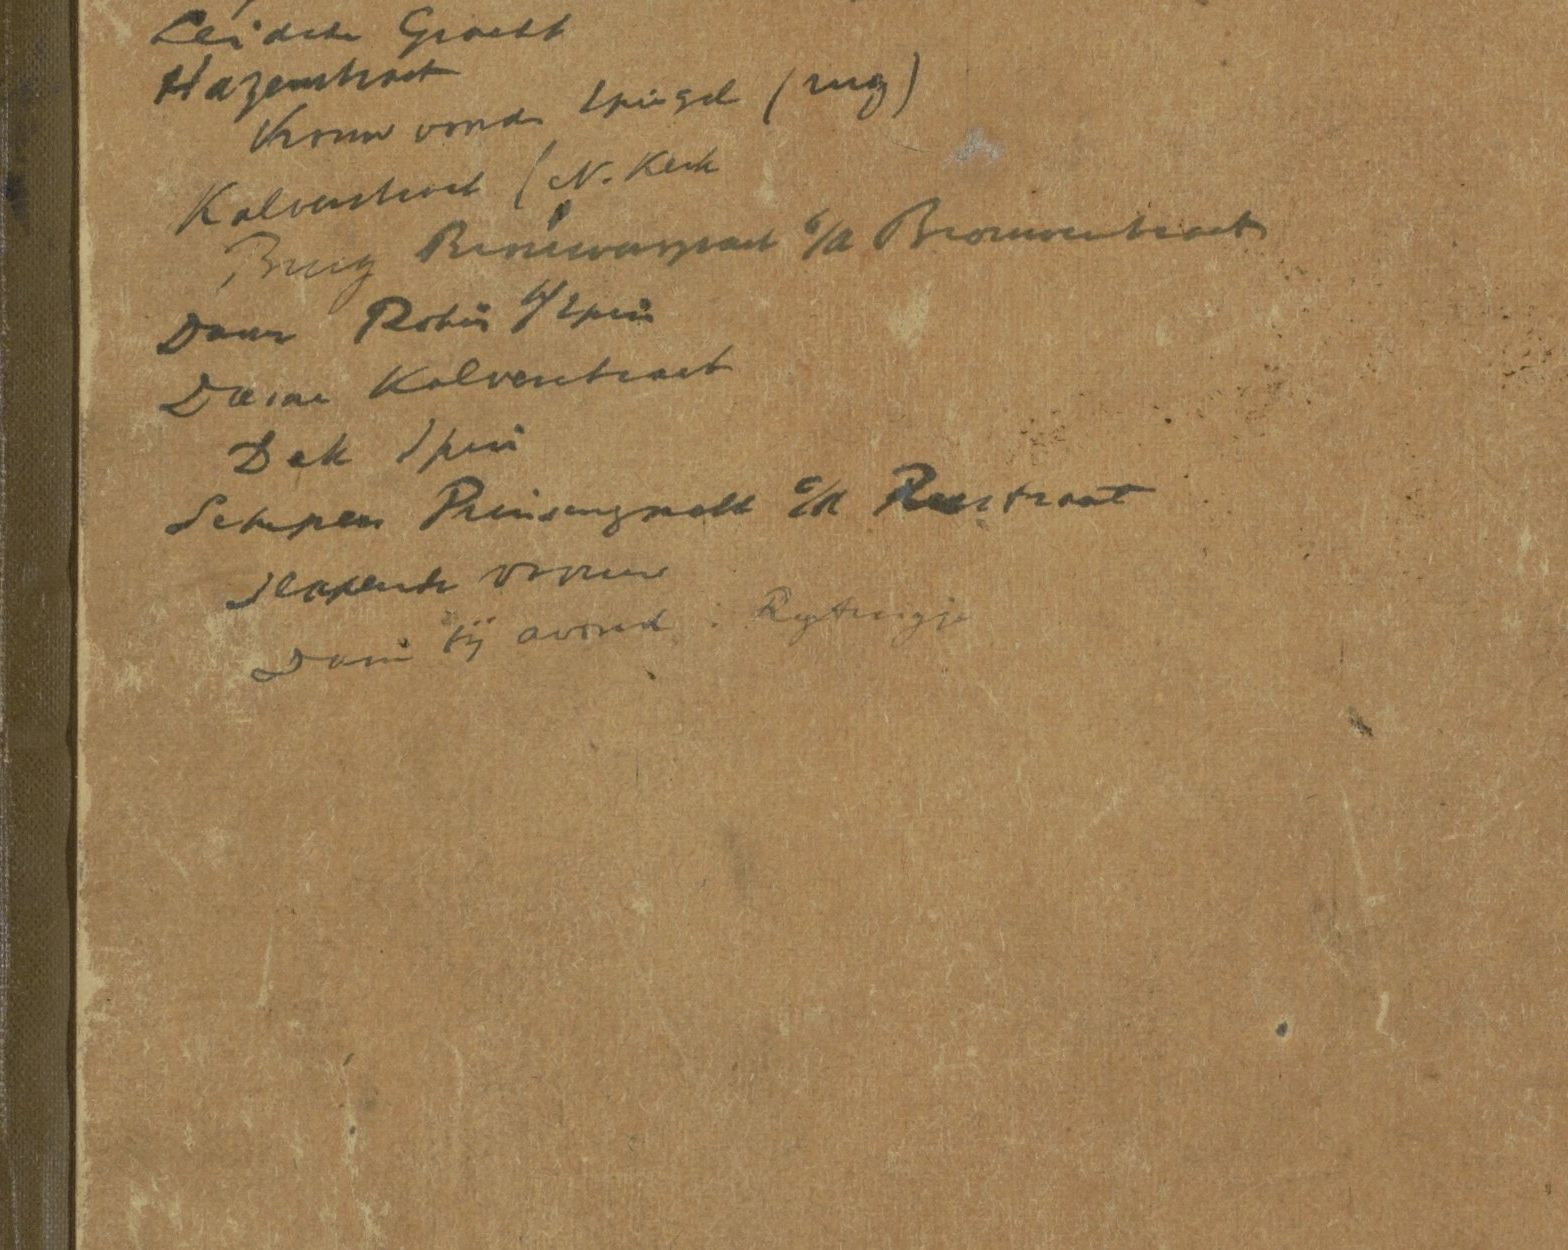 Leidsche Gracht
Hazenstraat
Vrouw voor de spiegel (rug)
Kalverstraat (N. Kerk
Brug Brouwersgracht c/a Brouwerstraat
Dam Rokin v/h Spui
Dam Kalverstraat
Dek Spui
Schepen Prinsengracht c/a Reestraat
slapende vrouw
Dam bij avond. Rijtuigje